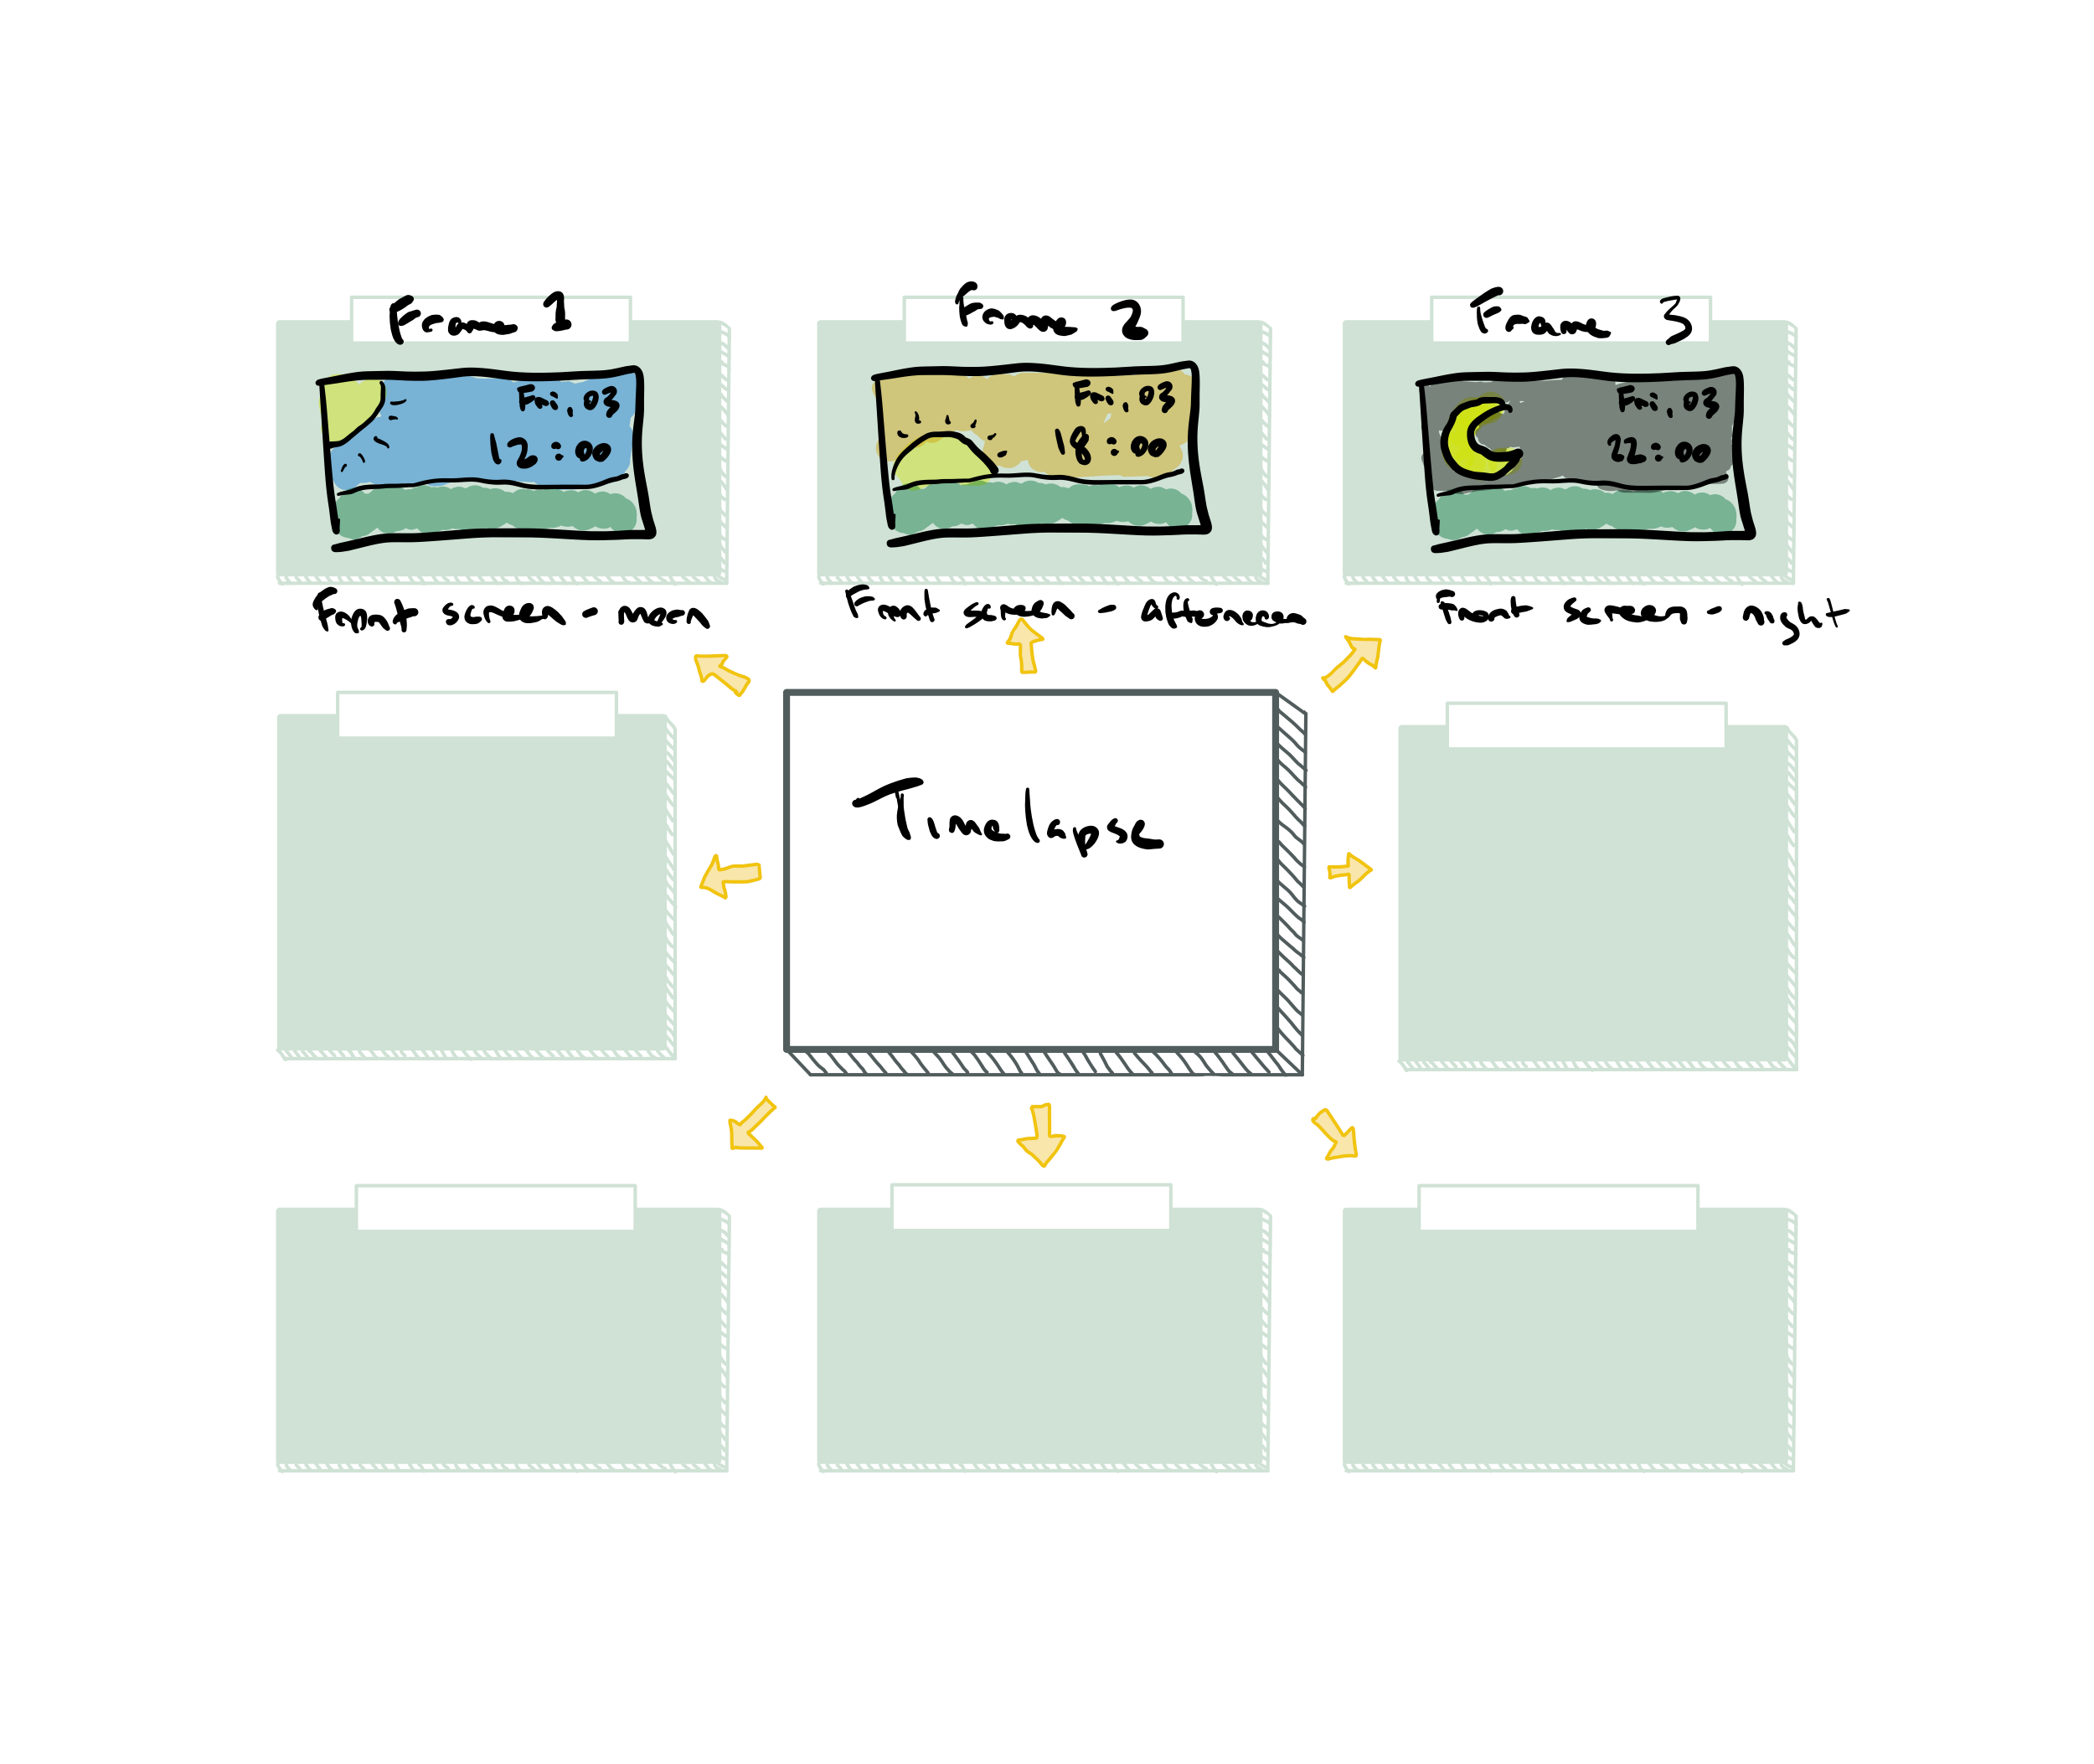 Frame 1
Time: 03
12:00
Front screen - noon
Frame 2
Time: 03
18:00
Front screen - afternoon
Frame 3
Time: 03
22:00
Front screen - night
Timelapse